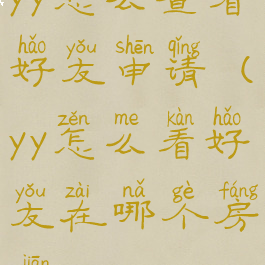 yy怎么查看
hǎo yǒu shēn qǐng
好友申请（
zěn me kàn hǎo
yy怎么看好
yǒu zài nǎ gè fáng
友在哪个房
jiān